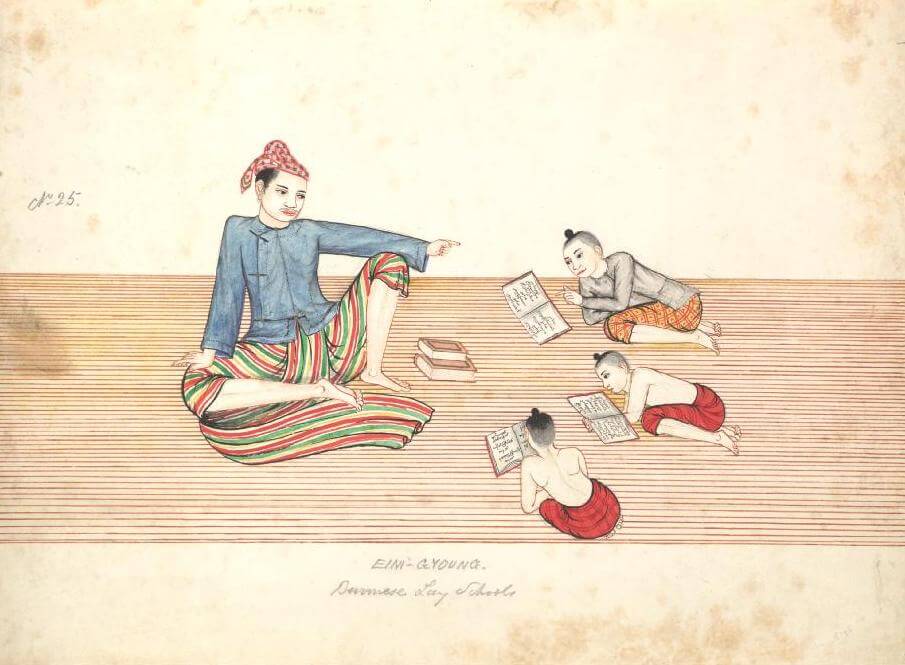 No. 25.
EIM-GYOUNG.
Burmese Lay Schools